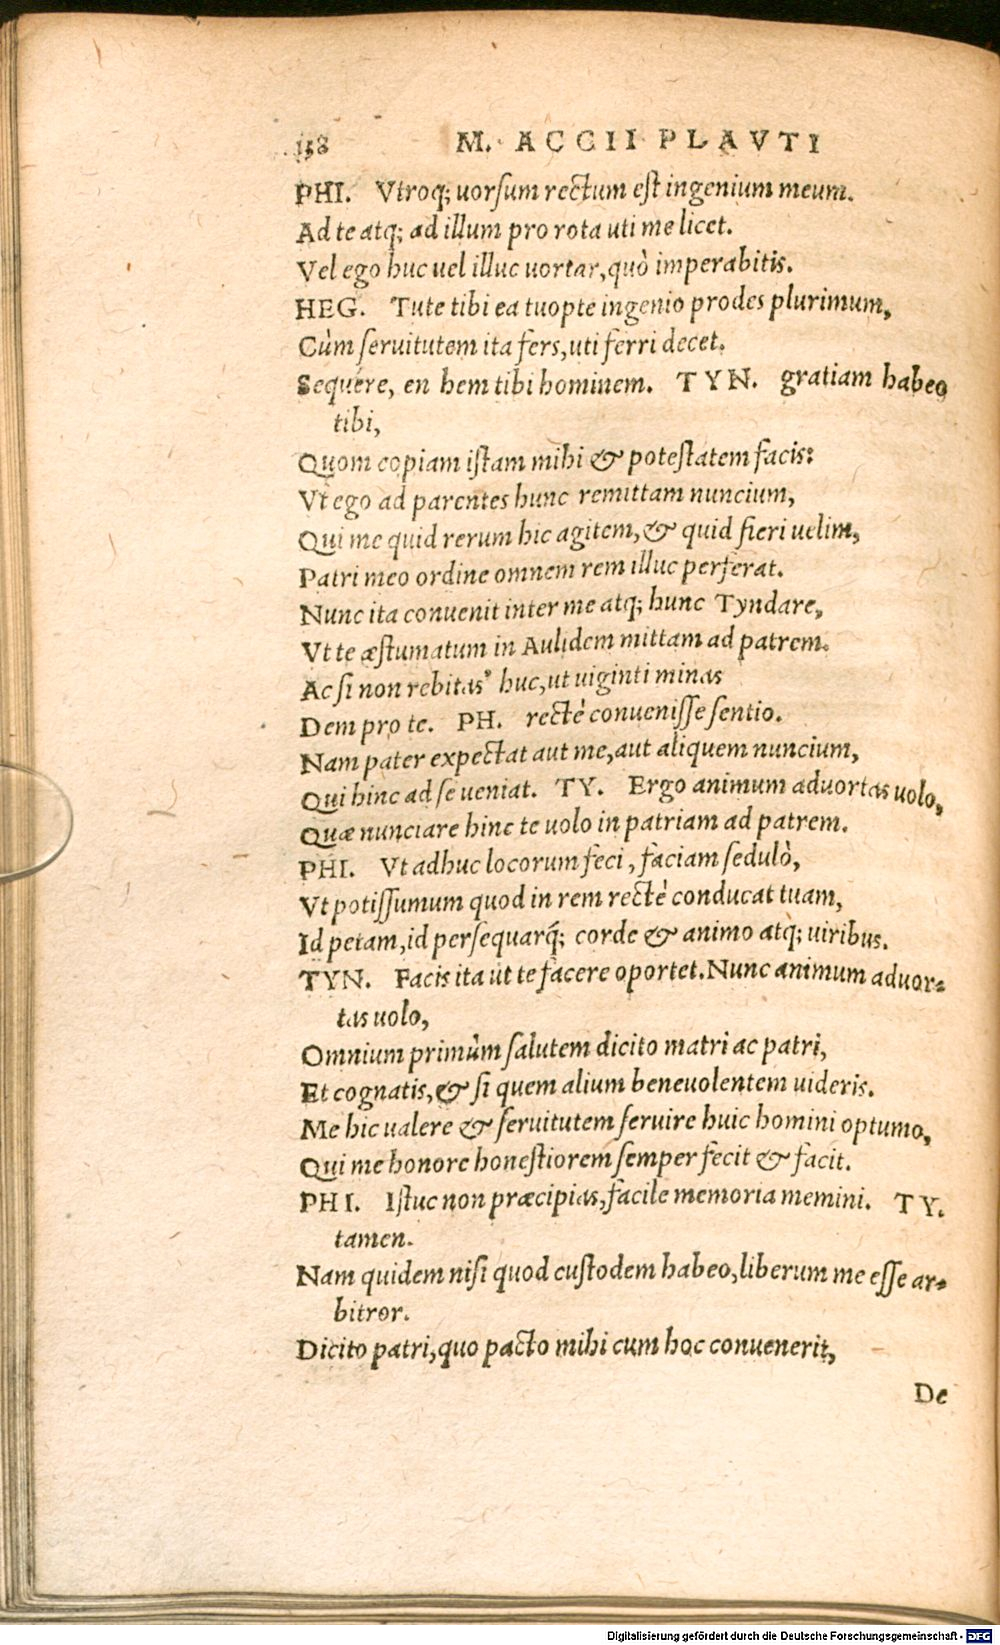 158 M. ACCII PLAVTI
PHI. Vtroq; uorsum rectum est ingenium meum.
Ad te atq; ad illum pro rota uti me licet.
Vel ego huc uel illuc uortar, quò imperabitis.
HEG. Tute tibi ea tuopte ingenio prodes plurimum,
Cùm seruitutem ita fers, uti ferri decet.
Sequere, en hem tibi hominem. TYN. gratiam habeo
tibi,
Quom copiam istam mihi & potestatem facis:
Vt ego ad parentes hunc remittam nuncium,
Qui me quid rerum hic agitem, & quid fieri uelim,
Patri meo ordine omnem rem illuc perferat.
Nunc ita conuenit inter me atq; hunc Tyndare,
Vt te æstumatum in Aulidem mittam ad patrem.
Ac si non rebitas huc, ut uiginti minas
Dem pro te. PH. rectè conuenisse sentio.
Nam pater expectat aut me, aut aliquem nuncium,
Qui hinc ad se ueniat. TY. Ergo animum aduortas uolo,
Quæ nunciare hinc te uolo in patriam ad patrem.
PHI. Vt adhuc locorum feci, faciam sedulò,
Vt potissumum quod in rem rectè conducat tuam,
Id petam, id persequarq́; corde & animo atq; uiribus.
TYN. Facis ita ut te facere oportet. Nunc animum aduor-
tas uolo,
Omnium primùm salutem dicito matri ac patri,
Et cognatis, & si quem alium beneuolentem uideris.
Me hic ualere & seruitutem seruire huic homini optumo,
Qui me honore honestiorem semper fecit & facit.
PHI. Istuc non præcipias, facile memoria memini. TY.
tamen.
Nam quidem nisi quod custodem habeo, liberum me esse ar-
bitror.
Dicito patri, quo pacto mihi cum hoc conuenerit,
De
Digitalisierung gefördert durch die Deutsche Forschungsgemeinschaft - DFG